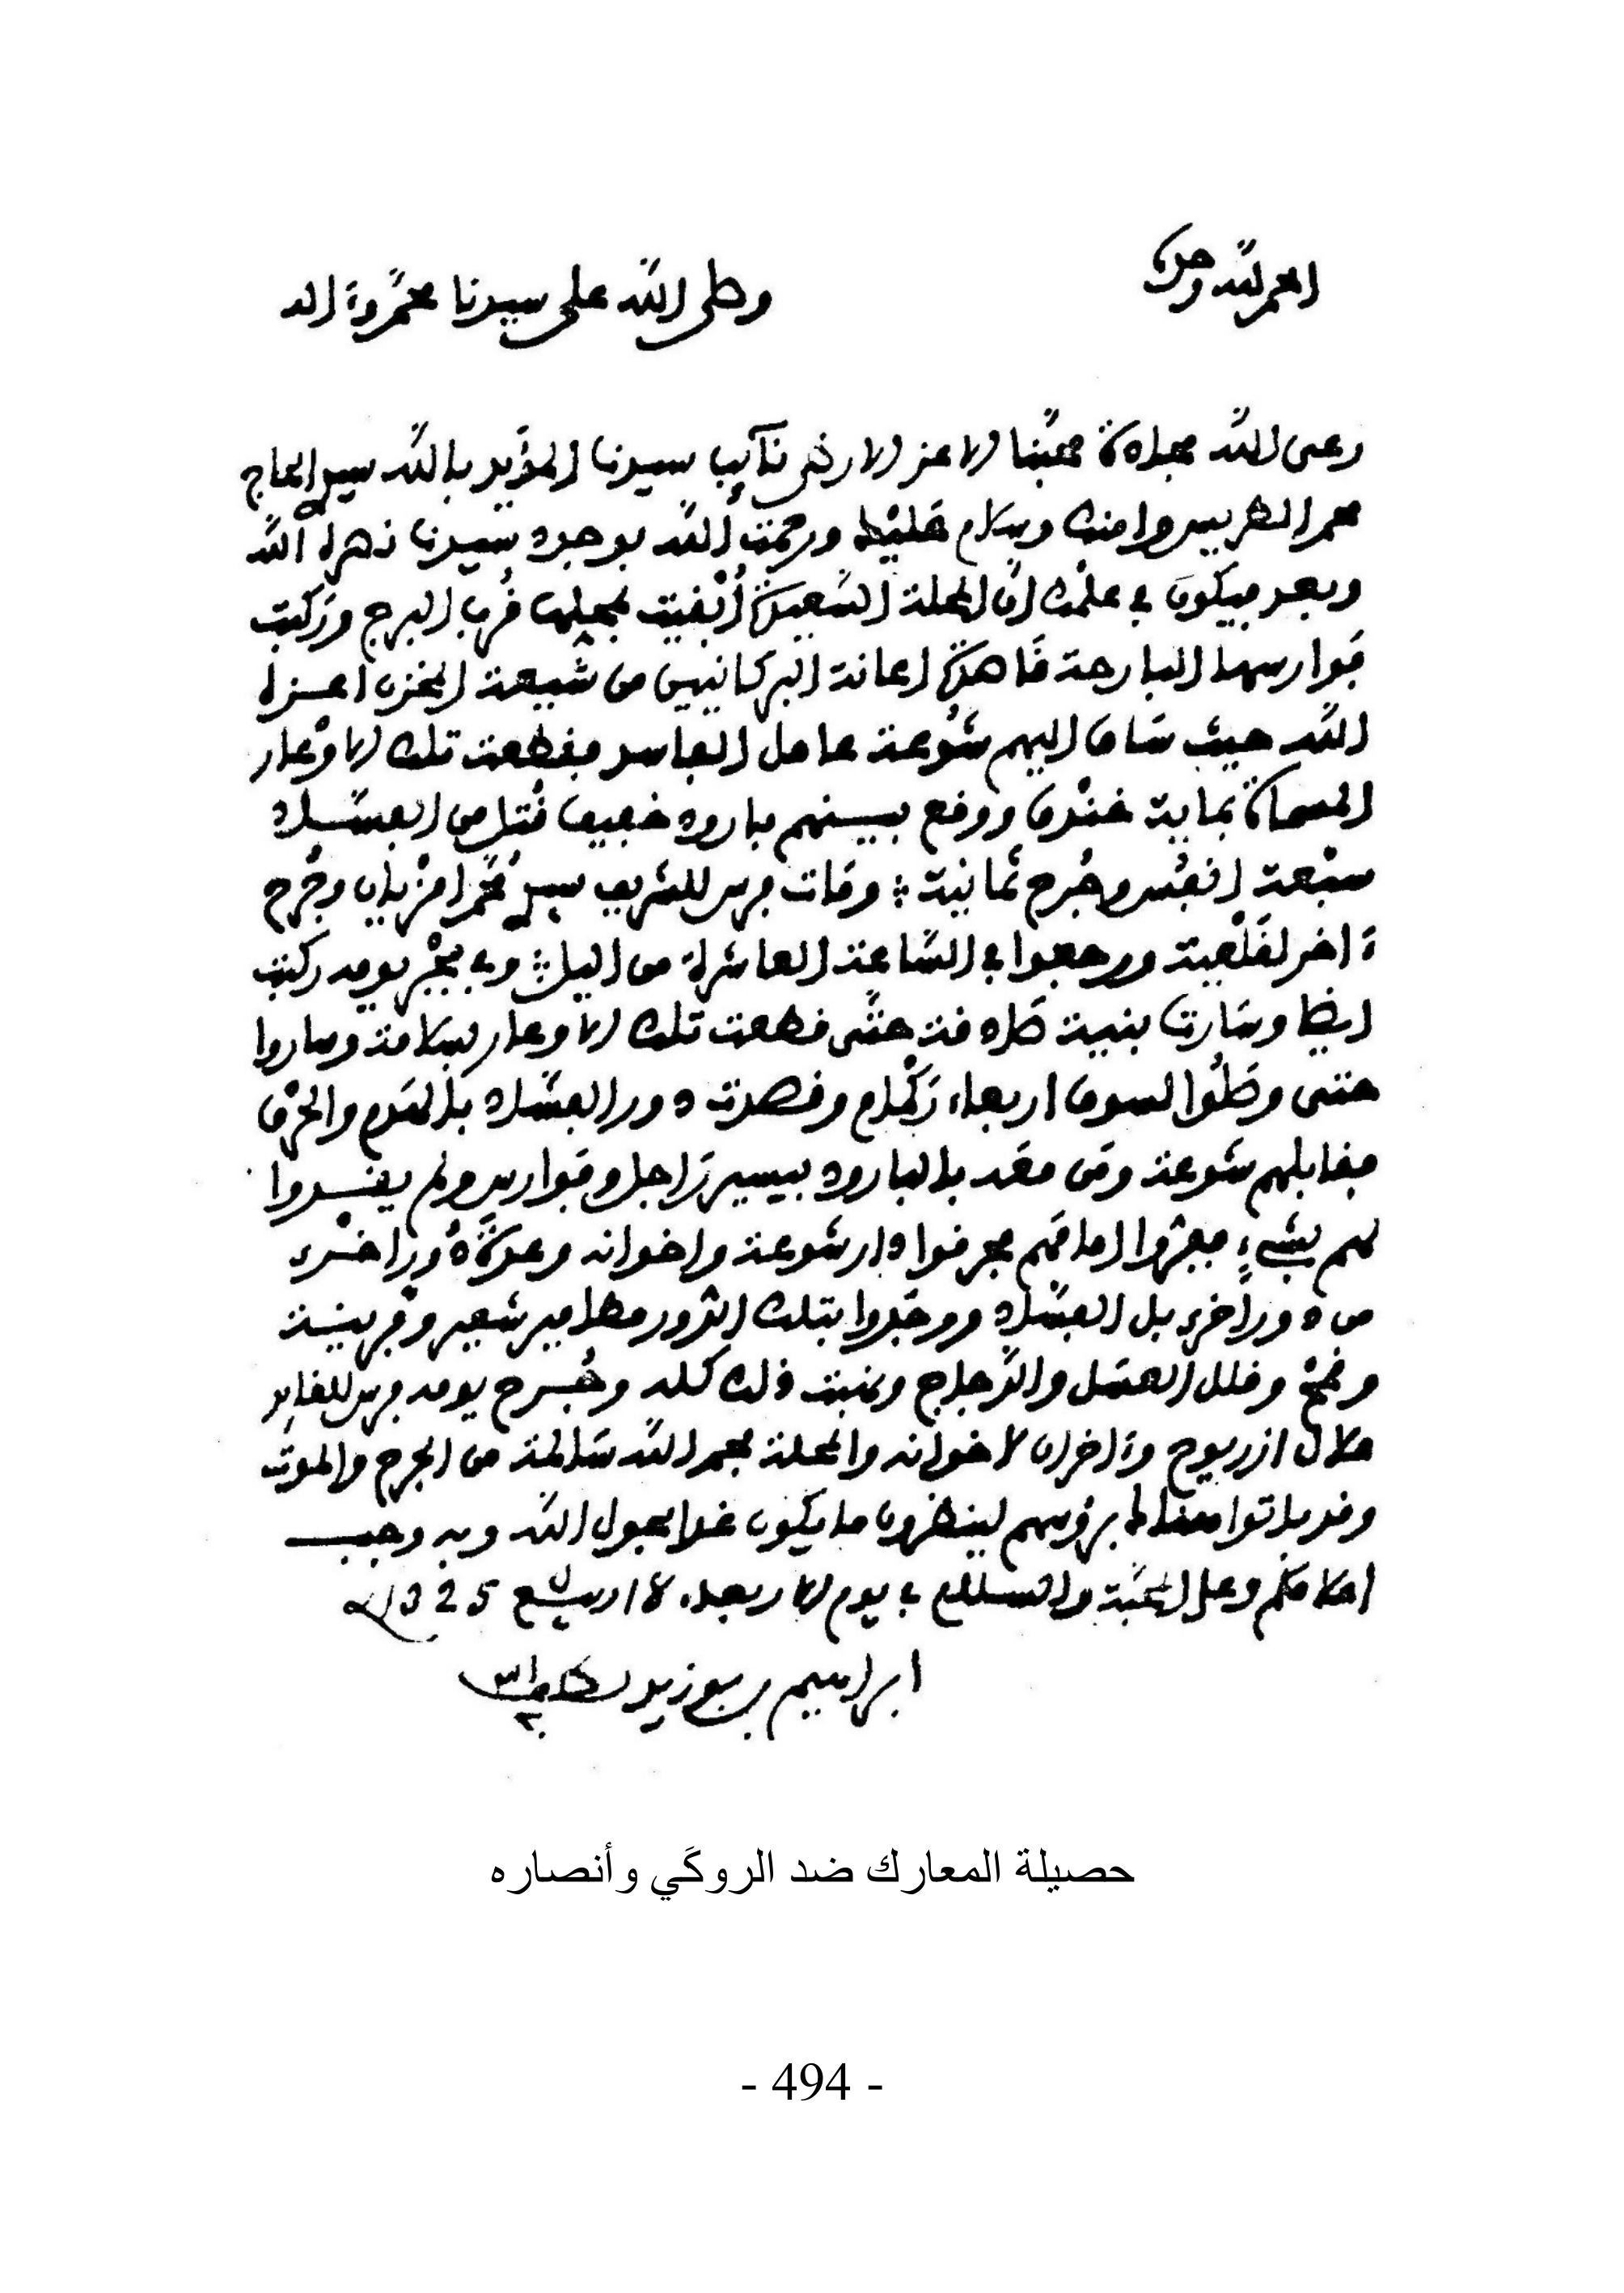 الحمد لله وحده
وصلى الله على سيدنا محمد وءاله
رعى الله مجادة محبنا الاعز الارضى نآئب سيدنا المؤيد بالله سيدي الحاج
محمد الطريس وامنك وسلام عليك ورحمت الله بوجود سيدنا نصره الله
وبعد فيكون في علمك ان المحلة السعيدة أبقيت بمحلها قرب البرج وركبت
فوارسها البارحة قاصدة اعانة البركانيين من شيعة المخزن اعزه
الله حيث ساق اليهم شوعة عامل الفاسد فقطعت تلك الاوعار
المسماة بماية خندق ووقع بينهم بارود خفيف قتل من الفساد
سبعة انفس وجرح ثمانية ومات فرس للشريف سيدي محمد امزيان وجرح
ءاخر لقلعية ورجعوا في الساعة العاشرة من اليل وفي فجر يومه ركبت
ايضا وسارت بنية صادقة حتى قطعت تلك الاوعار بسلامة وساروا
حتى وصلوا لسوق اربعاء زكم وقصدت دور الفساد بالهدم والحرق
فقابلهم شوعة ومن معه بالبارود بيسير راجل وفوارس ولم يفسدوا
لهم بشيء ففروا امامهم فحرقوا دار شوعة واخوانه وعدة دور اخرى
من دور اخر بل الفساد ووجدوا بتلك الدور مطامير شعير وقرنينة
وقمح وقلل العسل والدجاج ونهبت ذلك كله وجرح يومه فرس للقايد
علال ازريوح وءاخران لاخوانه والمحلة بحمد الله سالمة من الجرح والموت
وقد باتوا هناك برؤسهم لينظرون ما يكون غدا بحول الله وبه وجب
اعلامكم وعلى المحبة والسلام في يوم الاربعاء ربيع 1325
ابراهيم بن بوزيد
حصيلة المعارك ضد الروكَي وأنصاره
- 494 -